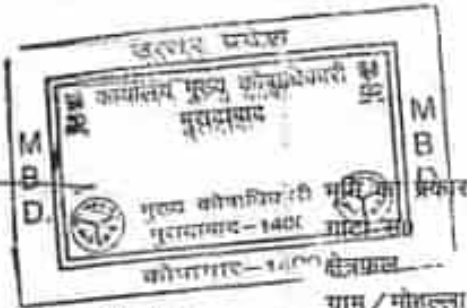 उत्तर प्रदेश
कार्यालय मुख्य कोषाधिकारी
मुरादाबाद
M
B
D.
M
B
D.
मुख्य कोषाधिकारी
मुरादाबाद-1400
कोषागार-1400
भूमि का प्रकार
गाटा सं०
क्षेत्रफल
ग्राम / मोहल्ला